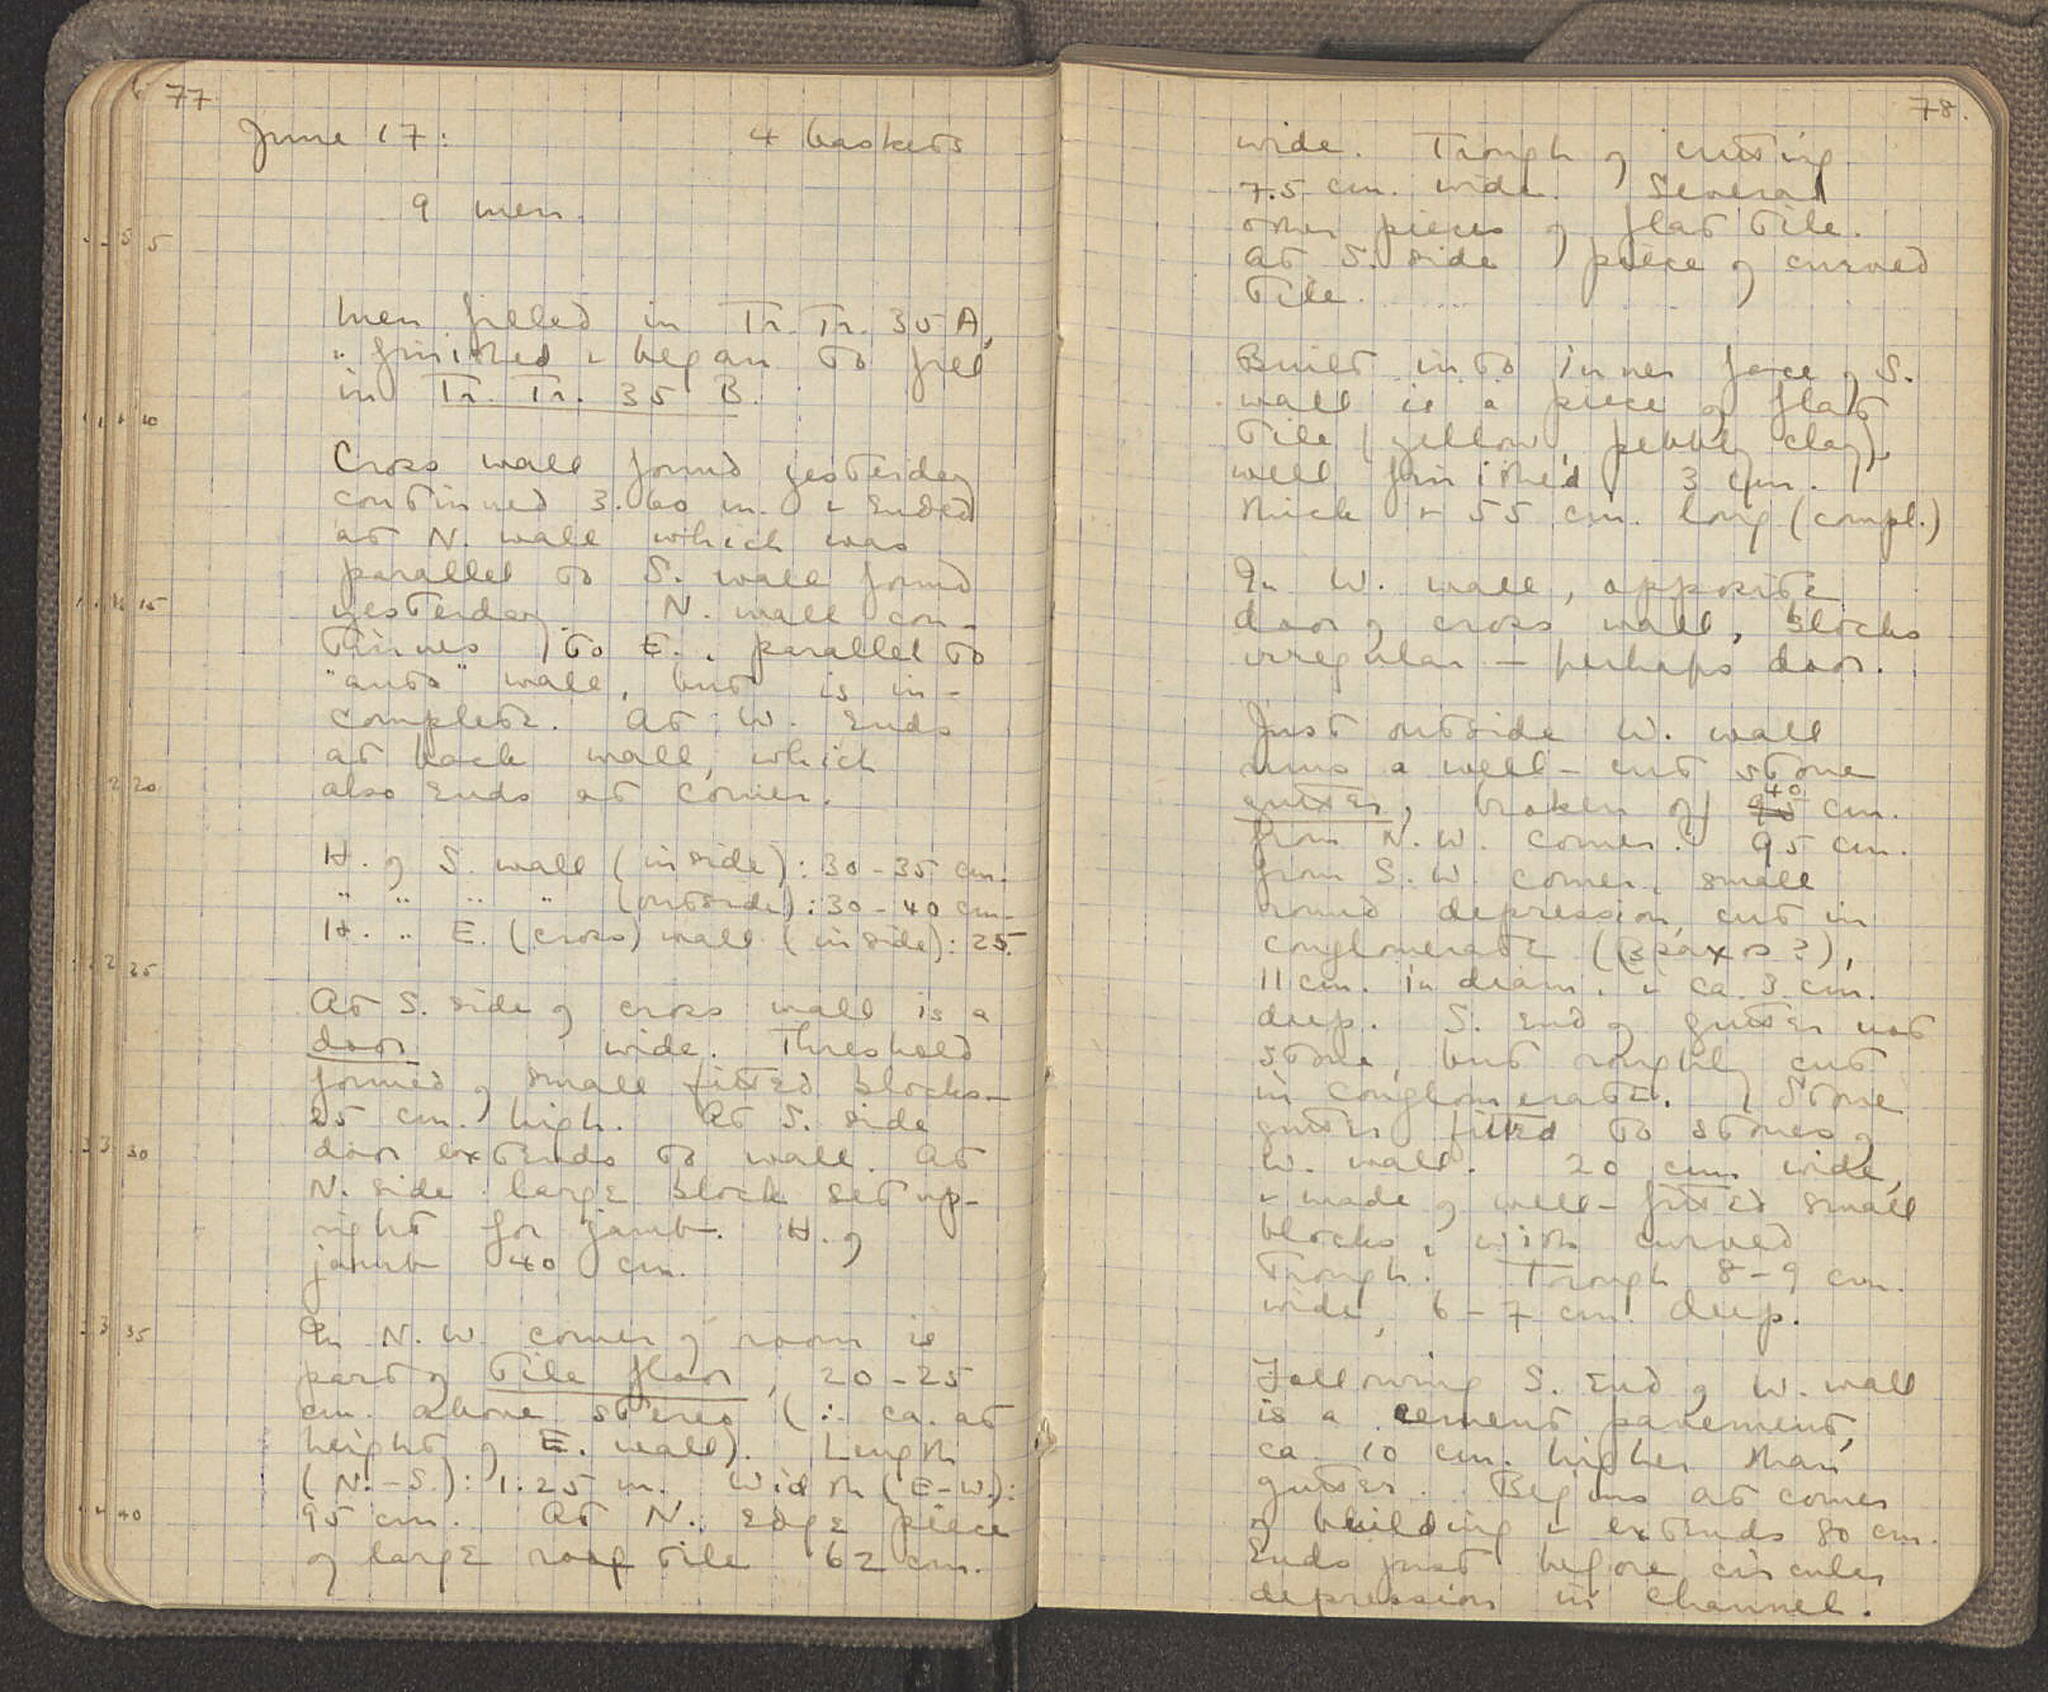 77
June 17: 4 baskets
9 men.
Men filled in Tr. Tr. 35 A,
" finished & began to fill
in Tr. Tr. 35 B.
Cross wall found yesterday
continued 3.60 m. & ended
at N. wall which was
parallel to S. wall found
yesterday. N. wall con-
tinues to E., parallel to
"anta" wall, but is in-
complete. At W. ends
at back wall, which
also ends at corner.
H. of S. wall (inside): 30-35 cm.
" " " " (outside): 30-40 cm.
H. " E. (cross) wall (inside): 25.
At S. side of cross wall is a
door wide. Threshold
formed of small fitted blocks -
25 cm. high. At S. side
door extends to wall. At
N. side large block set up-
right for jamb. H. of
jamb 40 cm.
In N.W. corner of room is
part of tile floor, 20-25
cm. above stereo (∴ ca. at
height of E. wall). Length
(N.-S.): 1.25 m. Width (E-W.):
95 cm. At N. edge piece
of large roof tile 62 cm.
78.
wide. Trough of cutting
7.5 cm. wide. Several
other pieces of flat tile.
At S. side piece of curved
tile.
Built into inner face of S.
wall is a piece of flat
tile (yellow, pebbly clay),
well finished, 3 cm.
thick & 55 cm. long (compl.)
In W. wall, opposite
door of cross wall, blocks
irregular - perhaps door.
Just outside W. wall
runs a well-cut stone
gutter, broken off 40 cm.
from N.W. corner. 95 cm.
from S.W. corner, small
round depression cut in
conglomerate (βράχος?),
11 cm. in diam. & ca. 3 cm.
deep. S. end of gutter not
stone, but roughly cut
in conglomerate. Stone
gutter fitted to stones of
W. wall. 20 cm wide,
& made of well-fitted small
blocks, with curved
trough. Trough 8-9 cm.
wide, 6-7 cm. deep.
Following S. end of W. wall
is a cement pavement,
ca. 10 cm. higher than
gutter. Begins at corner
of building & extends 80 cm.
Ends just before circular
depression in channel.